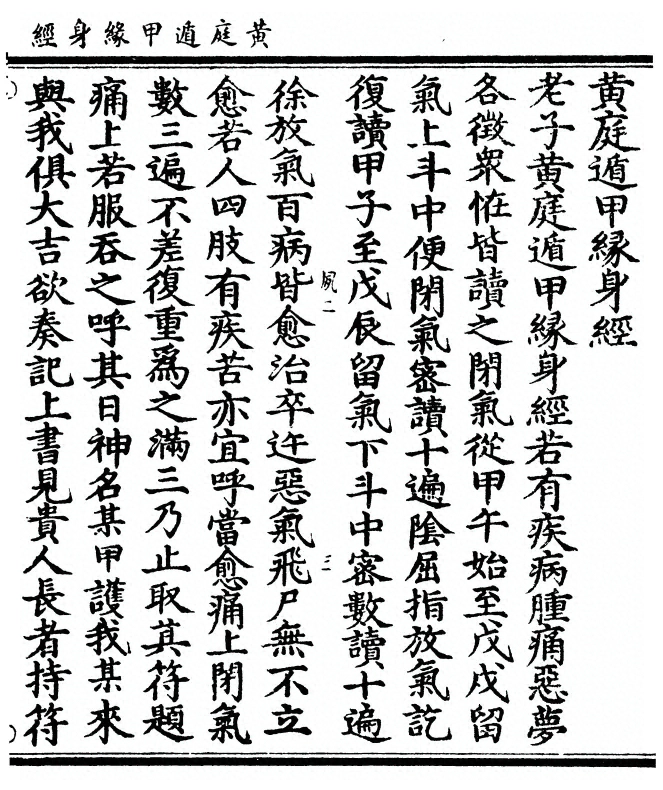 黃庭遁甲緣身經
黃庭遁甲緣身經
老子黃庭遁甲緣身經若有疾病腫痛惡夢
各徵衆恠皆讀之閉氣從甲午始至戊戌留
氣上斗中便閉氣密讀十遍陰屈指放氣訖
復讀甲子至戊辰留氣下斗中密數讀十遍
夙二
三
徐放氣百病皆愈治卒迕惡氣飛尸無不立
愈若人四肢有疾苦亦宜呼當愈痛上閉氣
數三遍不差復重爲之滿三乃止取其符題
痛上若服吞之呼其日神名某甲護我某來
與我俱大吉欲奏記上書見貴人長者持符